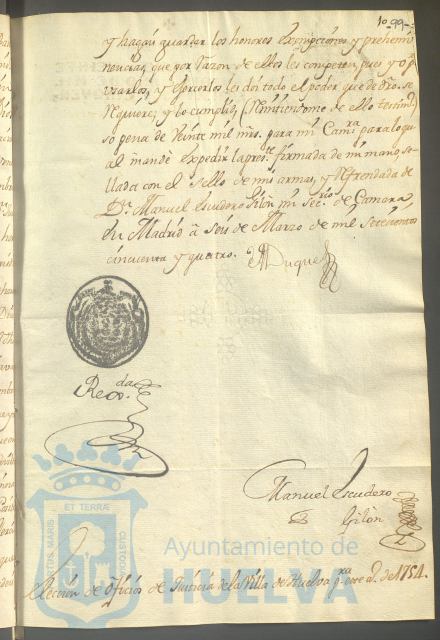 10 99
y hagan guardar los honores exempciones y prehemi
nencias, que por razon de ellos les competen, pues yo p.ª
usarlos, y exercerlos les doi todo el poder que de dro. se
requiere; y lo cumplis, (remitiendome de ello testim.º)
so pena de Veinte mil mrs. para mi Cam.ra para lo qu
al mandè expedir la pres.te firmada de mi mano, se
llada con el sello de mis armas, y refrendada de
D.n Manuel Escudero Gilòn mi Sec.rio de Camara
En Madrid â Seis de Marzo de mil setecientos
cinquenta y quatro.
El Duque
Reg.da
Manuel Escudero
Gilòn
Elección de Oficios de Justicia de la Villa de Huelva p.ra este a.º de 1754.
PORTUS MARIS ET TERRÆ CUSTODIA
Ayuntamiento de
HUELVA